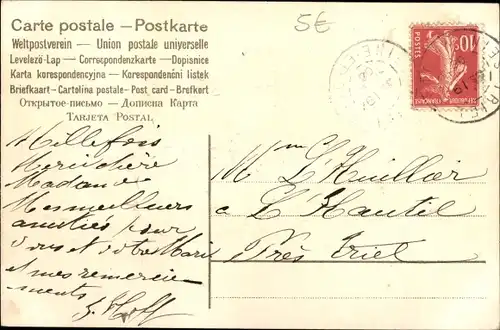 5€
Carte postale — Postkarte
Weltpostverein — Union postale universelle
Levelező-Lap — Correspondenzkarte — Dopisnice
Karta korespondencyjna — Korespondenční listek
Briefkaart - Cartolina postale - Post card - Brefkort
Открытое-письмо — Дописна Карта
TARJETA POSTAL
10c
POSTES
Mille fois
Merci chère
Madame
Mes meilleures
amitiés pour
vous et votre Mari
et mes remercie-
ments
Mme L'Huillier
à L'Hautil
Près Triel